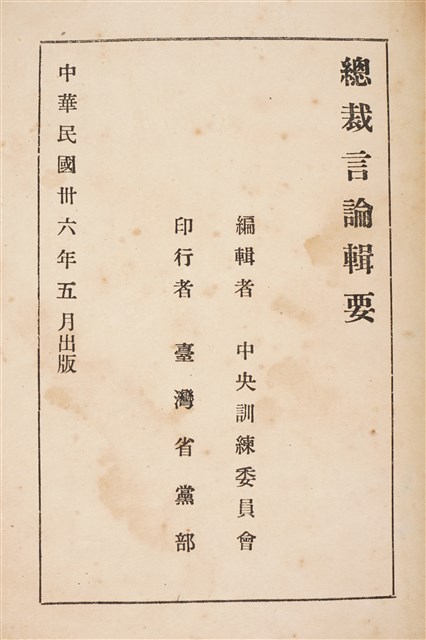 總裁言論輯要
編輯者 中央訓練委員會
印行者 臺灣省黨部
中華民國卅六年五月出版